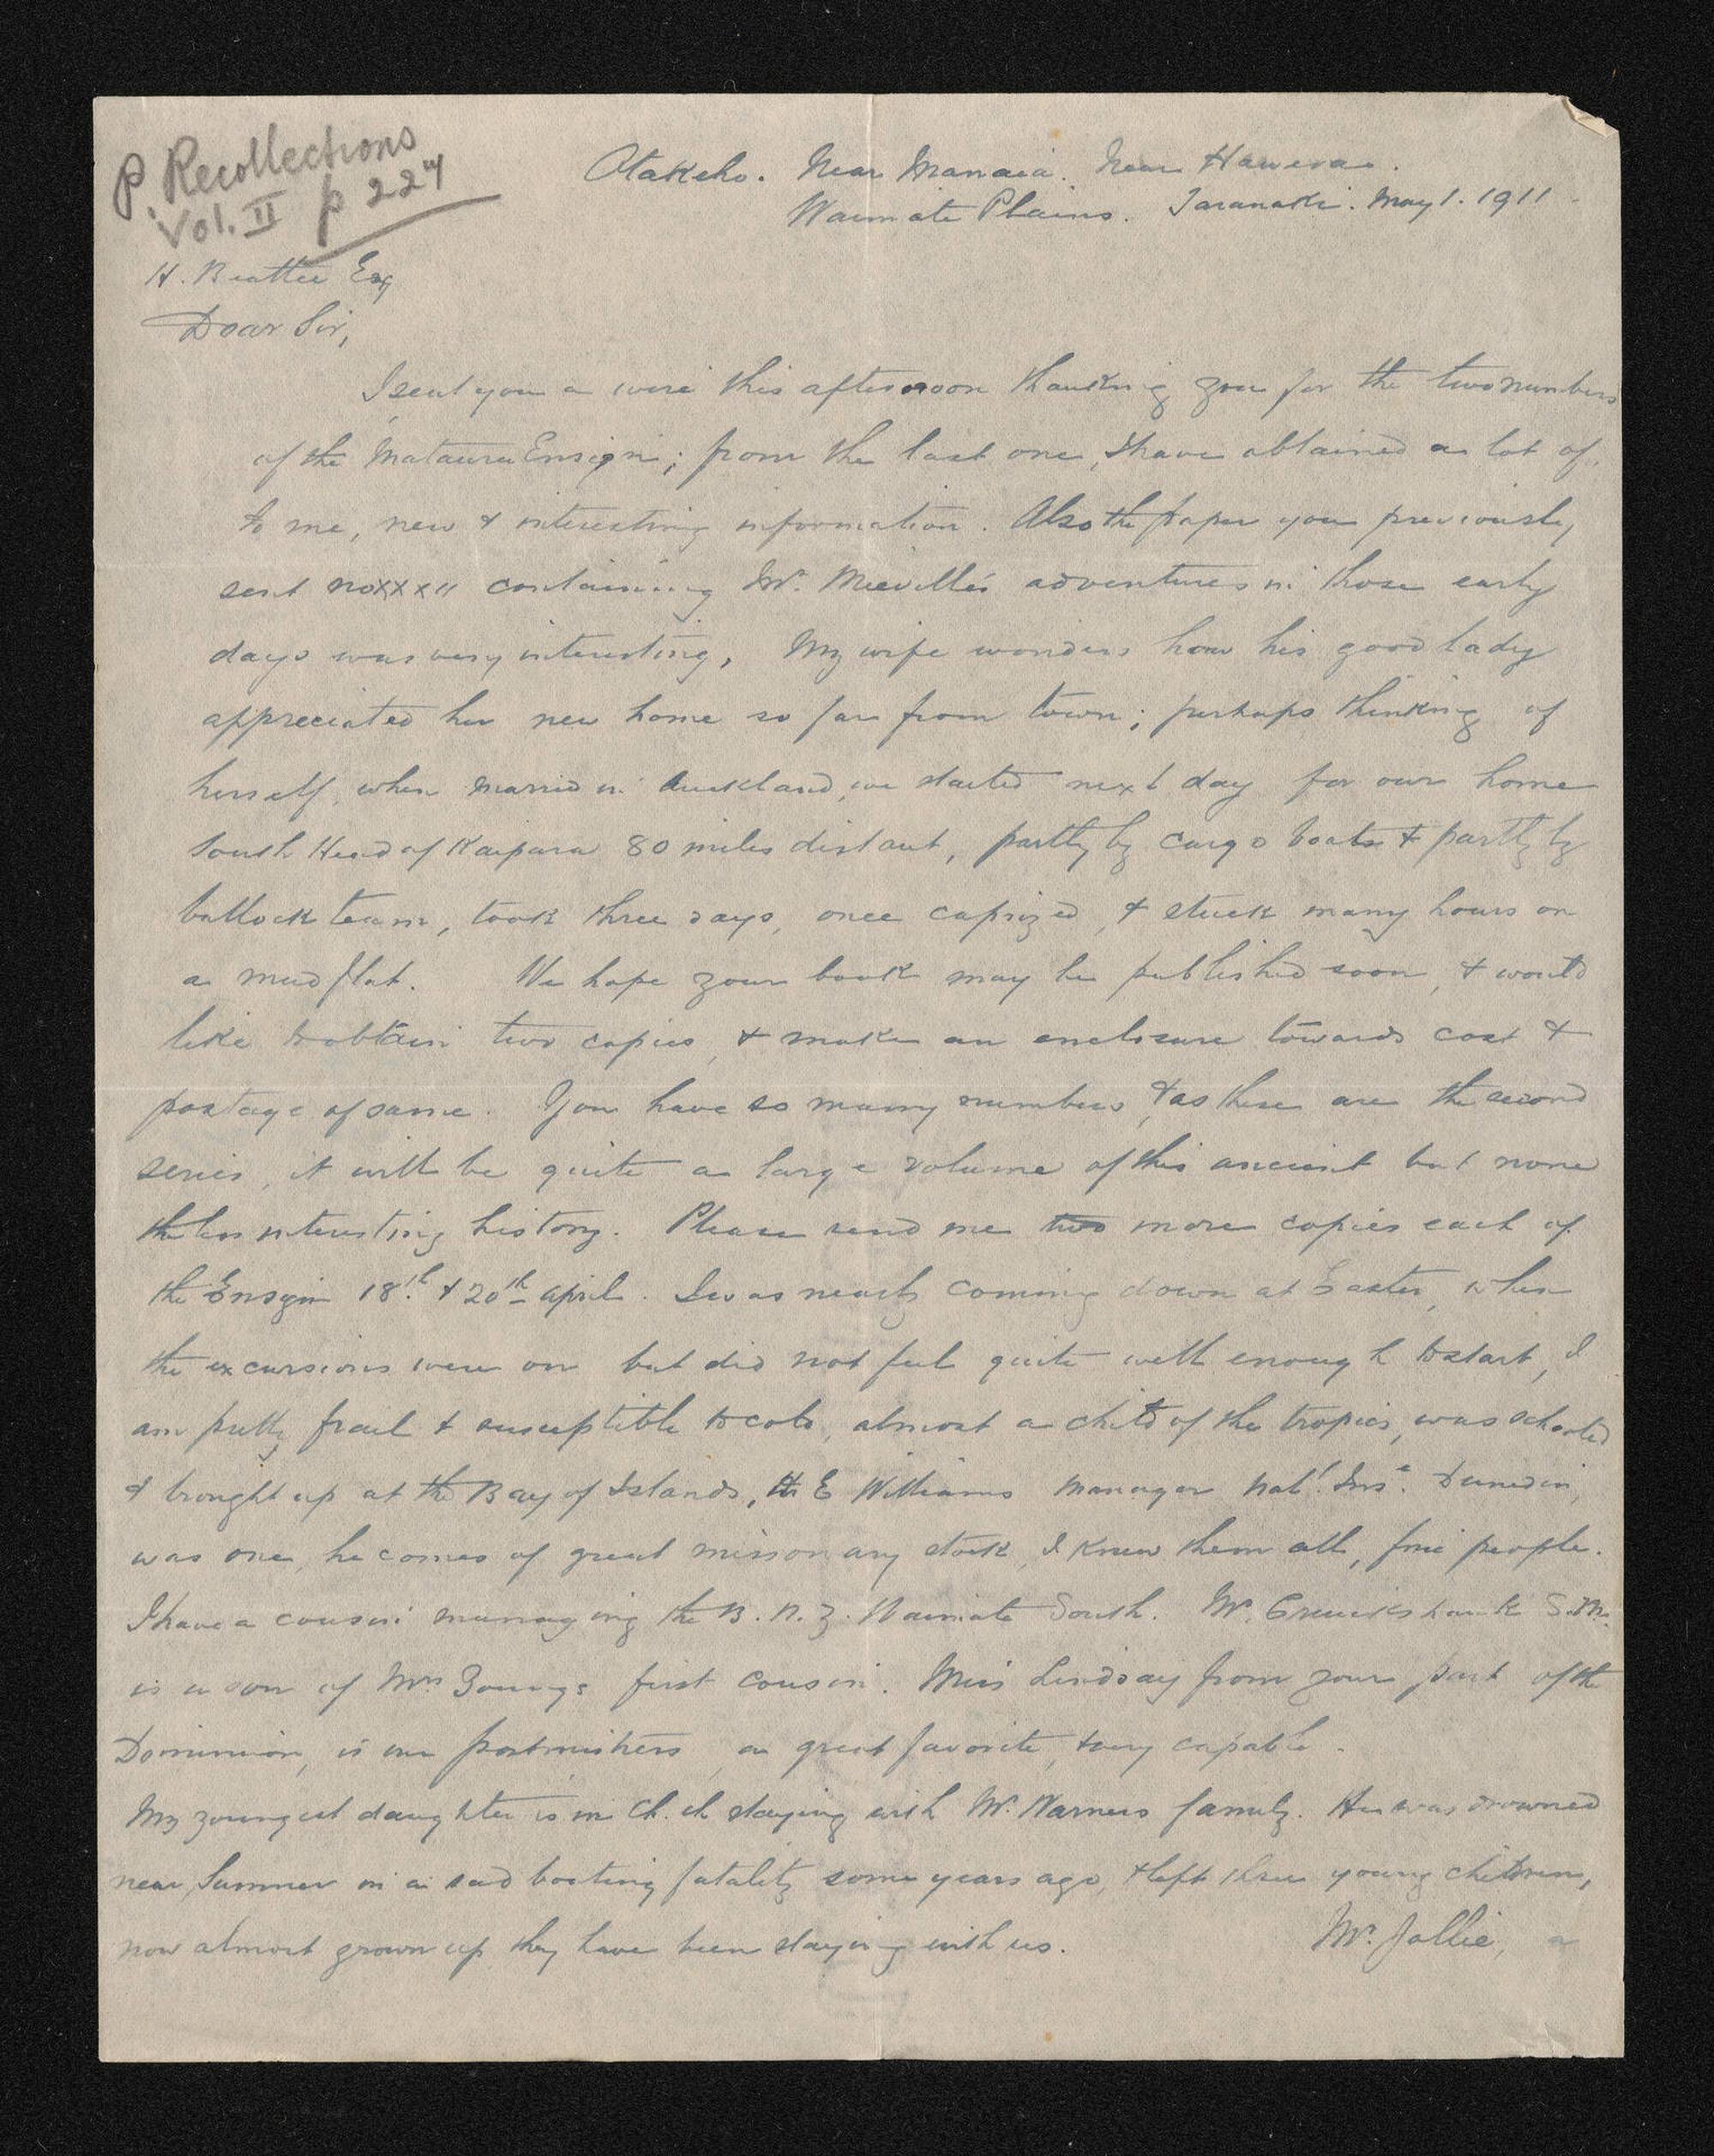 P. Recollections
Vol. II p 224
Otakeho. Near Manaia. Near Hawera.
Waimate Plains. Taranaki. May 1. 1911
H. Beattie Esq
Dear Sir,
I sent you a wire this afternoon thanking you for the two numbers
of the Mataura Ensign; from the last one, I have obtained a lot of,
to me, new & interesting information. Also the paper you previously
sent no XXXII containing Mr. Mieville's adventures in those early
days was very interesting, My wife wonders how his good lady
appreciated her new home so far from town; perhaps thinking of
herself, when married in Auckland, we started next day for our home
South Head of Kaipara 80 miles distant, partly by cargo boats & partly by
bullock team, took three days, once capsized, & stuck many hours on
a mud flat. We hope your book may be published soon, & would
like to obtain two copies, & make an enclosure towards cost &
postage of same. You have so many numbers, & as these are the second
series, it will be quite a large volume of this ancient but none
the less interesting history. Please send me two more copies each of
the Ensign 18th. & 20th April. I was nearly coming down at Easter, when
the excursions were on but did not feel quite well enough to start, I
am pretty frail & susceptible to cold, almost a child of the tropics, was schooled
& brought up at the Bay of Islands, H E Williams manager Natl. Inse. Dunedin,
was one, he comes of great missionary stock, I knew them all, fine people.
I have a cousin managing the B. N. Z. Waimate South. Mr. Cruickshank S.M.
is a son of Mrs Youngs first cousin. Miss Lindsay from your part of the
Dominion, is our postmistress, a great favorite, & very capable.
My youngest daughter is in Ch. ch staying with Mr. Warners family. He was drowned
near Sumner in a sad boating fatality some years ago, & left three young children,
now almost grown up, they have been staying with us. Mr. Jollie, a